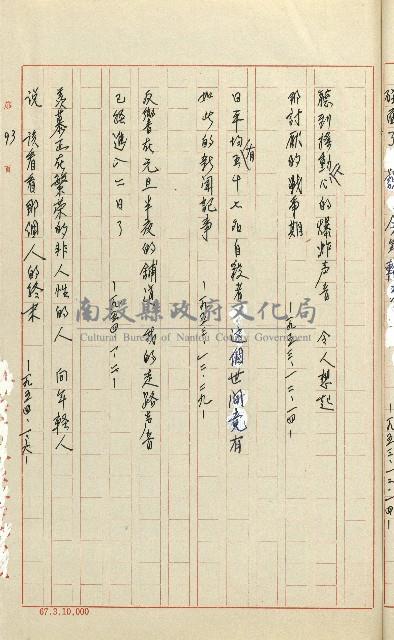 聽到搔動人心的爆炸声音 令人想起
那討厭的戰爭期 —一九五三、一二、一四—
日平均有五十七名自殺者 這個世間竟有
如此的新聞記事 —一九五三、一二、二九—
反響在元旦半夜的舖道 我的走路声音
已經進入二日了 —一九五四、一、二—
羨慕正在繁榮的非人性的人 向年輕人
說 該看看那個人的終末 —一九五四、一、六—
第 93 頁
67.3.10,000
南投縣政府文化局
Cultural Bureau of Nantou County Government